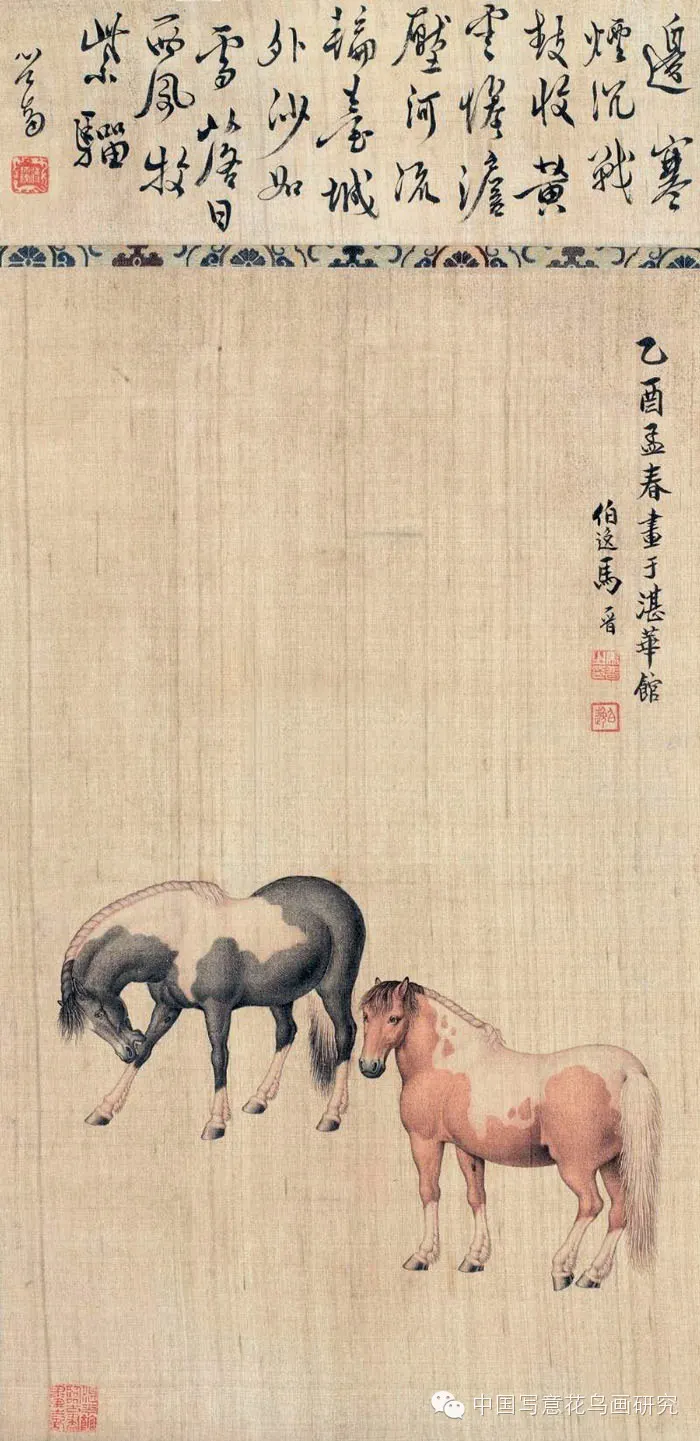 邊塞
煙沉戰
鼓收黃
雲慘澹
壓河流
輪臺城
外沙如
雪落日
西風牧
紫騮
心畬
乙酉孟春畫于湛華館
伯逸馬晉
中国写意花鸟画研究